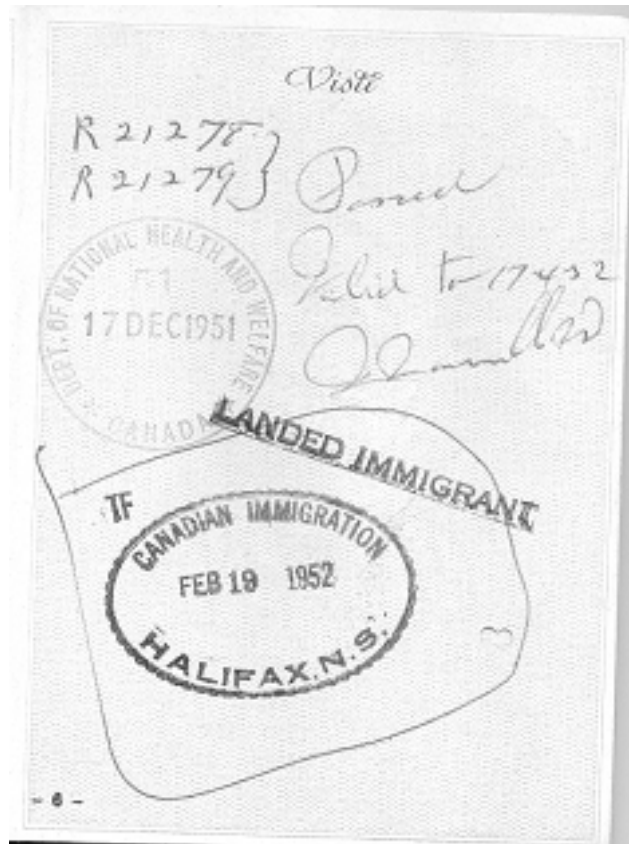 Visti
R 21278
R 21279
Passed
Valid to 17 4 52
DEPT. OF NATIONAL HEALTH AND WELFARE
17 DEC 1951
CANADA
LANDED IMMIGRANT
TF
CANADIAN IMMIGRATION
FEB 19 1952
HALIFAX, N.S.
- 6 -